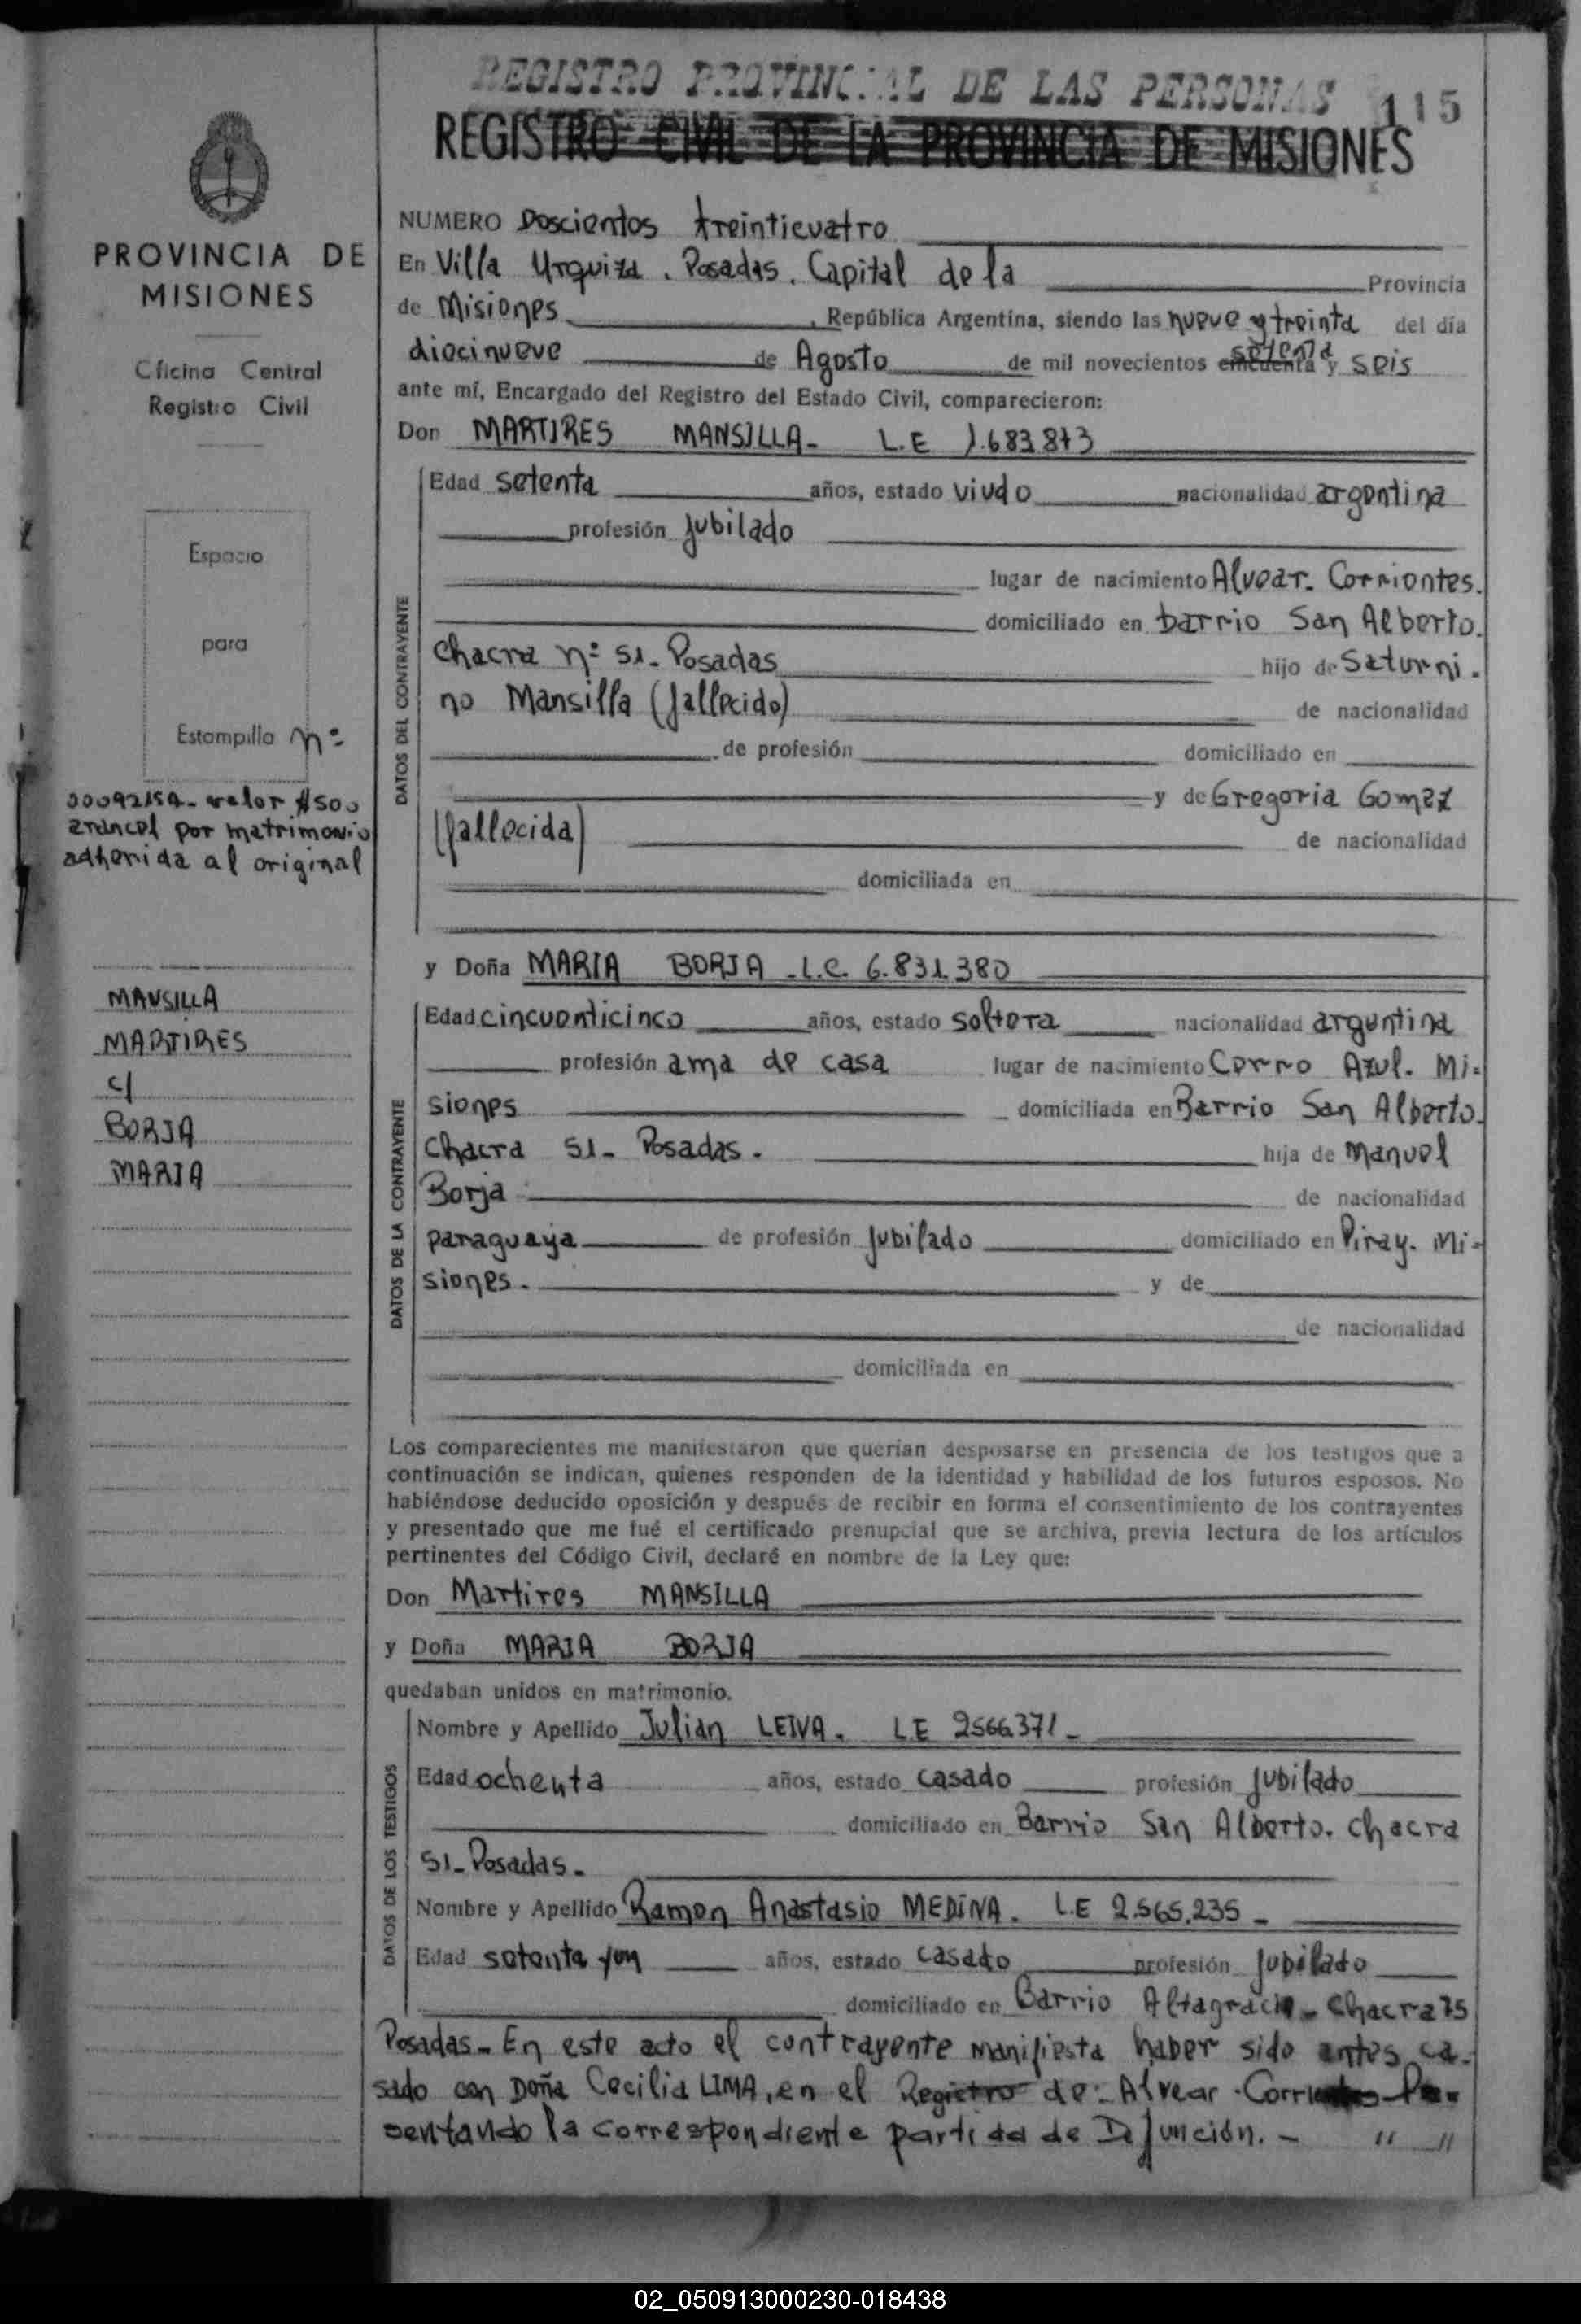 REGISTRO PROVINCIAL DE LAS PERSONAS 115
REGISTRO CIVIL DE LA PROVINCIA DE MISIONES
PROVINCIA DE
MISIONES
Oficina Central
Registro Civil
Espacio
para
Estampilla nº
00092154- valor $500
arancel por matrimonio
adherida al original
MANSILLA
MARTIRES
c/
BORJA
MARIA
NUMERO Doscientos treinticuatro
En Villa Urquiza. Posadas. Capital de la Provincia
de Misiones, República Argentina, siendo las nueve y treinta del día
diecinueve de Agosto de mil novecientos cincuenta setenta y seis
ante mí, Encargado del Registro del Estado Civil, comparecieron:
Don MARTIRES MANSILLA- L.E 1.683.873
DATOS DEL CONTRAYENTE
Edad setenta años, estado viudo nacionalidad argentina
profesión jubilado
lugar de nacimiento Alvear. Corrientes.
domiciliado en barrio San Alberto.
Chacra nº 51- Posadas hijo de Saturni-
no Mansilla (fallecido) de nacionalidad
de profesión domiciliado en
y de Gregoria Gomez
(fallecida) de nacionalidad
domiciliada en
y Doña MARIA BORJA -L.C. 6.831.380
DATOS DE LA CONTRAYENTE
Edad cincuenticinco años, estado soltera nacionalidad argentina
profesión ama de casa lugar de nacimiento Cerro Azul. Mi-
siones domiciliada en Barrio San Alberto.
Chacra 51- Posadas. hija de Manuel
Borja de nacionalidad
paraguaya de profesión jubilado domiciliado en Piray. Mi-
siones. y de
de nacionalidad
domiciliada en
Los comparecientes me manifestaron que querían desposarse en presencia de los testigos que a
continuación se indican, quienes responden de la identidad y habilidad de los futuros esposos. No
habiéndose deducido oposición y después de recibir en forma el consentimiento de los contrayentes
y presentado que me fué el certificado prenupcial que se archiva, previa lectura de los artículos
pertinentes del Código Civil, declaré en nombre de la Ley que:
Don Martires MANSILLA
y Doña MARIA BORJA
quedaban unidos en matrimonio.
DATOS DE LOS TESTIGOS
Nombre y Apellido Julian LEIVA. L.E 2566371-
Edad ochenta años, estado casado profesión jubilado
domiciliado en Barrio San Alberto. Chacra
51- Posadas.
Nombre y Apellido Ramon Anastasio MEDINA. L.E 2.565.235-
Edad setenta y un años, estado casado profesión jubilado
domiciliado en Barrio Altagracia- Chacra 75
Posadas- En este acto el contrayente manifiesta haber sido antes ca-
sado con Doña Cecilia LIMA, en el Registro de: Alvear. Corrientes
sentando la correspondiente partida de Defunción.- " "
02_050913000230-018438